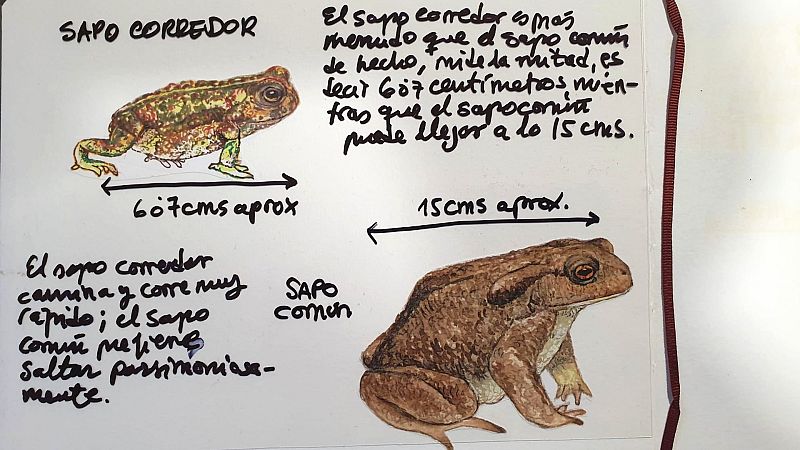 SAPO CORREDOR
El sapo corredor es más
menudo que el sapo común
de hecho, mide la mitad, es
decir 6ó7 centímetros, mien-
tras que el sapo común
puede llegar a lo 15 cms.
6ó7cms aprox
15cms aprox.
El sapo corredor
camina y corre muy
rápido; el sapo
común prefiere
saltar parsimoniosa-
mente.
SAPO
común